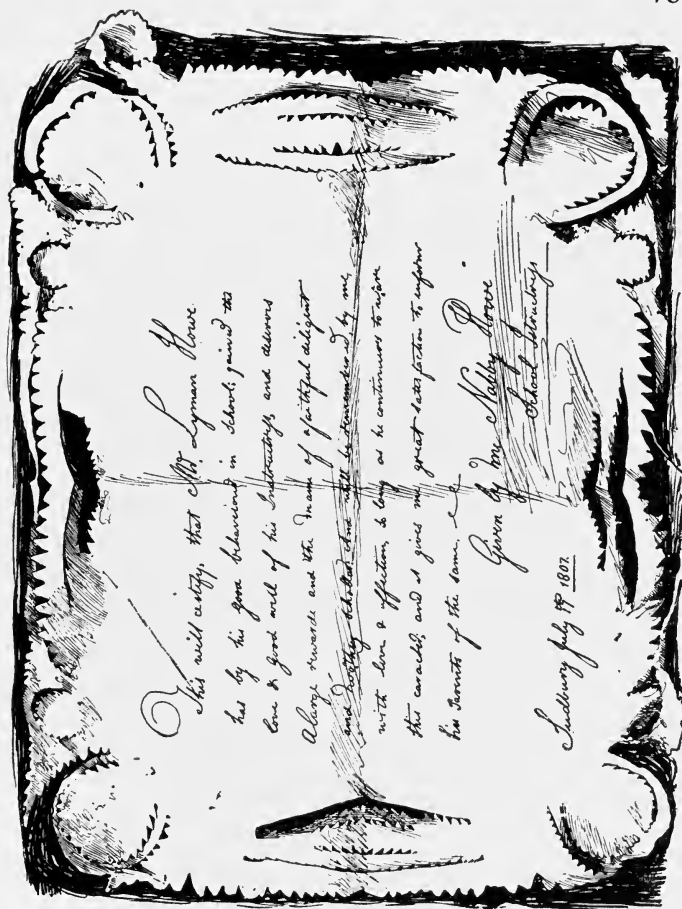 This will certify, that Mr. Lyman Howe
has by his good behaviour in School; gained the
love & good will of his Instructress, and deservs
A large rewarde and the name of a faithful diligent
and worthey scholar, and will be remembered by me,
with love & affection, so long as he continues to injoie
this caracter, and it gives me great satisfaction to inform
his Parents of the same.
Given by me Nabby Howe
School Instructress
Sudbury July 19th 1802